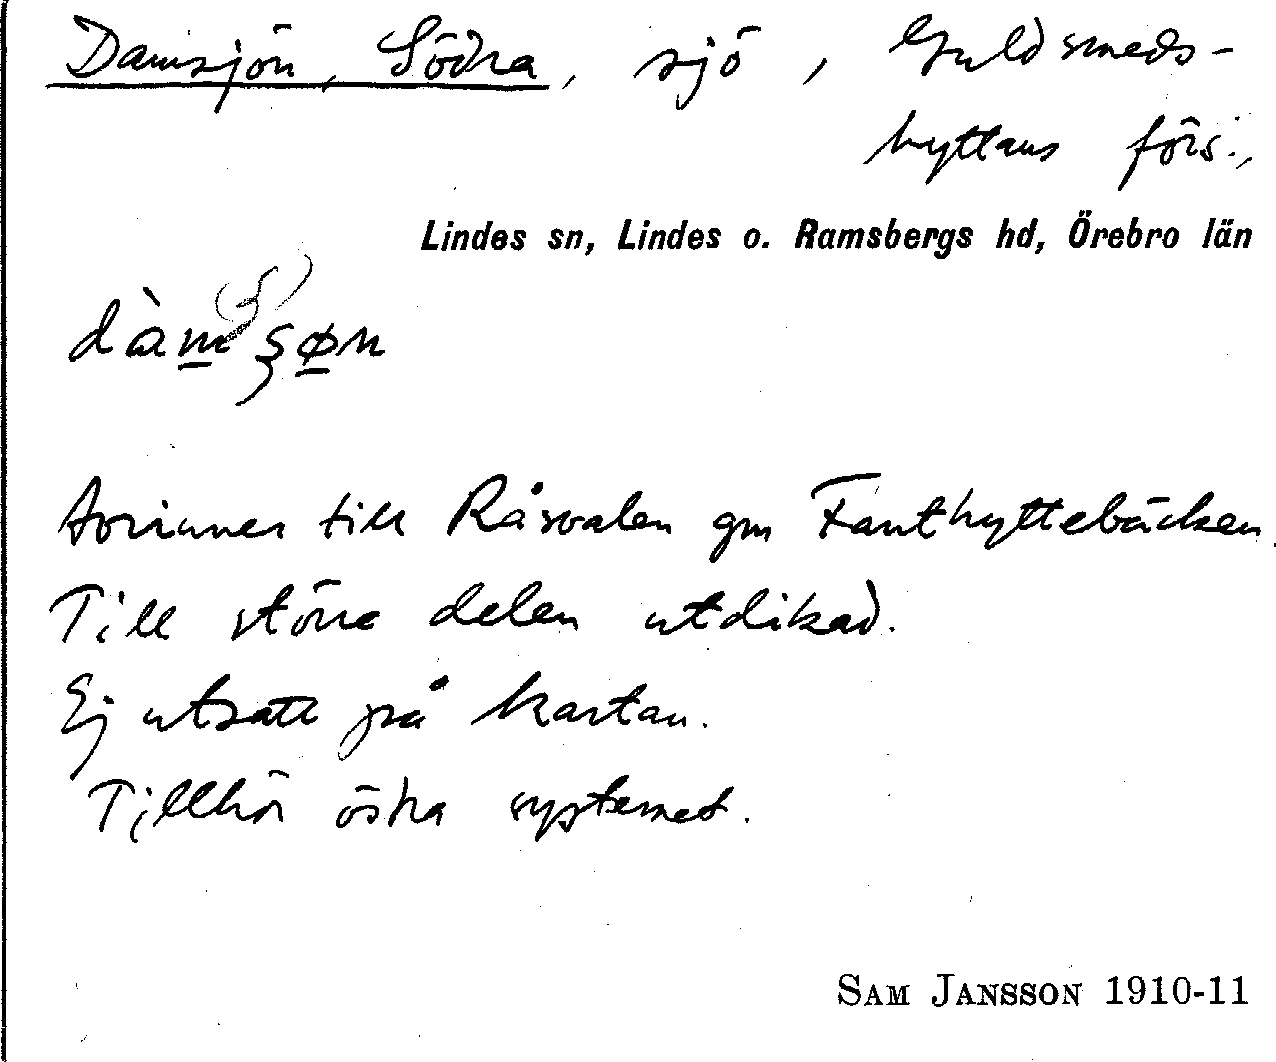 Damsjön, Södra, sjö, Guldsmeds-
hyttans förs.,
Lindes sn, Lindes o. Ramsbergs hd, Örebro län
dàm ʂøn
Avrinner till Råsvalen gm Fanthyttebäcken.
Till större delen utdikad.
Ej utsatt på kartan.
Tillhör östra systemet.
SAM JANSSON 1910-11